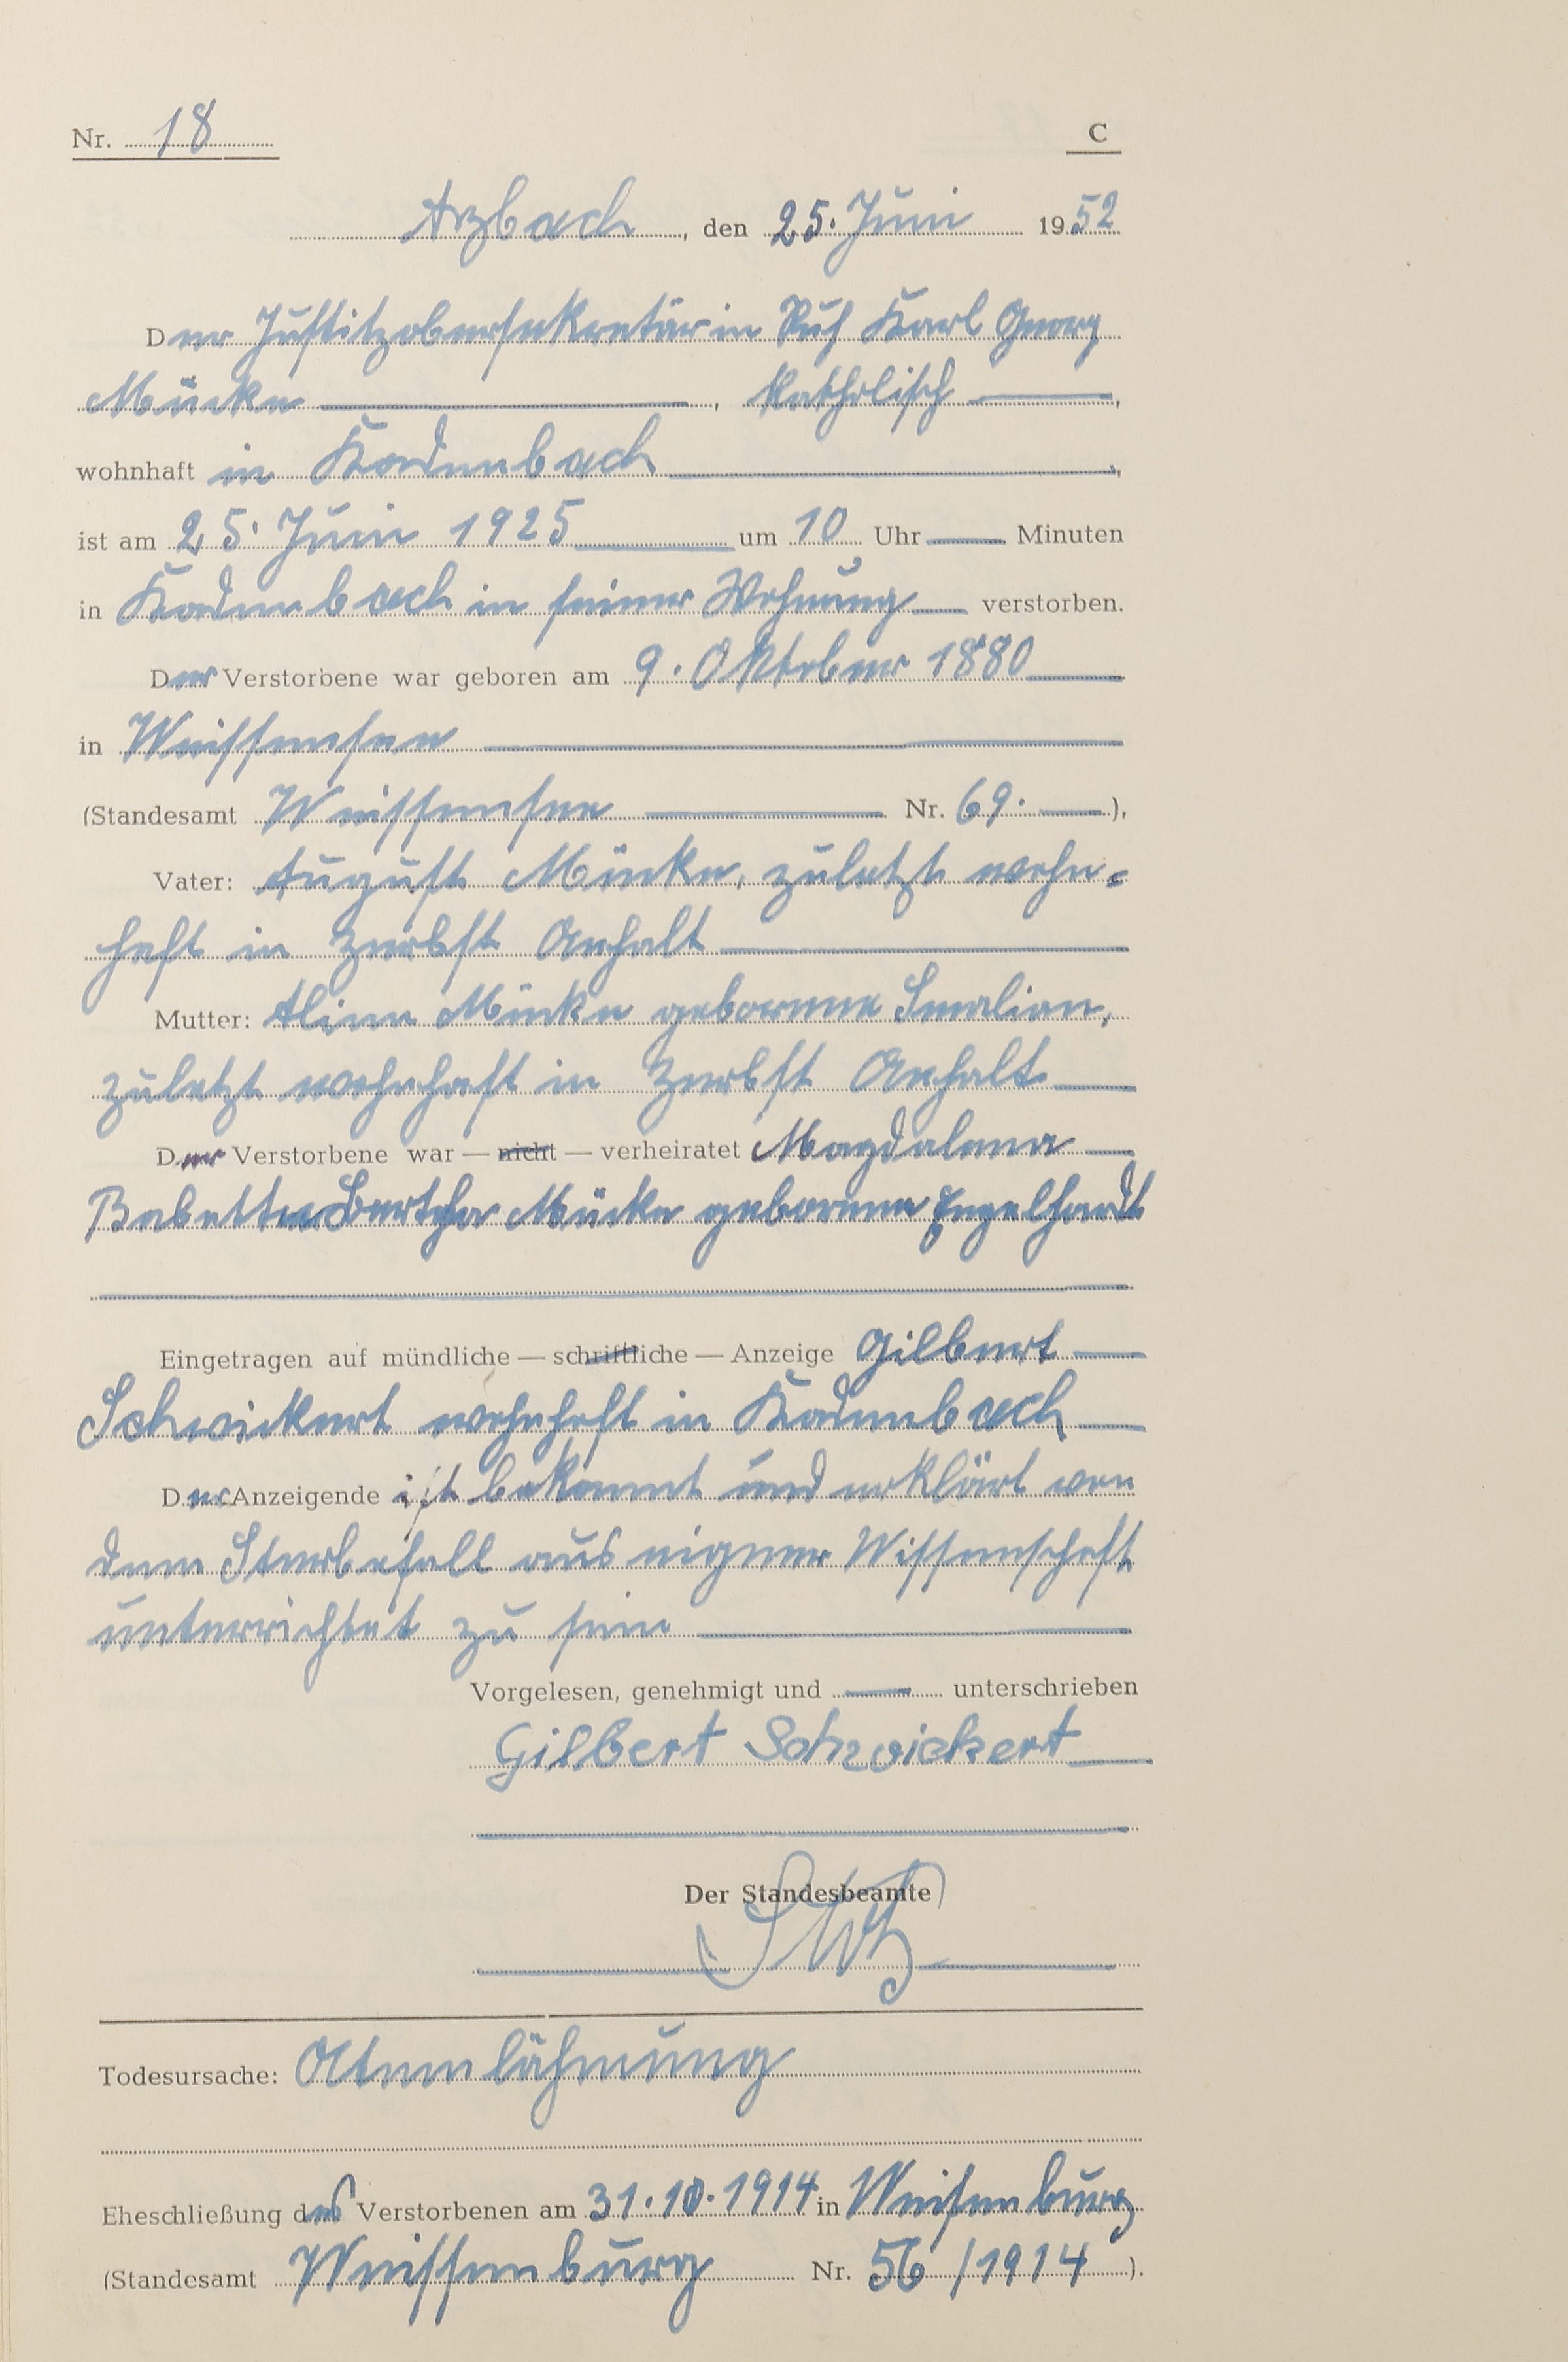 Nr. 18 C
Arzbach, den 25. Juni 1952
Der Justitzobersekretär in Ruh Karl Georg
Mücke, katholisch,
wohnhaft in Kadenbach,
ist am 25. Juni 1925 um 10 Uhr Minuten
in Kadenbach in seiner Wohnung verstorben.
Der Verstorbene war geboren am 9. Oktober 1880
in Weissensee
(Standesamt Weissensee Nr. 69.),
Vater: August Mücke, zuletzt wohn=
haft in Zerbst Anhalt
Mutter: Aline Mücke geborene Smalian,
zuletzt wohnhaft in Zerbst Anhalt
Der Verstorbene war — nicht — verheiratet Magdalena
Babette Bertha Mücke geborene Engelhardt
Eingetragen auf mündliche — schriftliche — Anzeige Gilbert
Schwickert wohnhaft in Kadenbach
Der Anzeigende ist bekannt und erklärt von
dem Sterbefall aus eigner Wissenschaft
unterrichtet zu sein
Vorgelesen, genehmigt und unterschrieben
Gilbert Schwickert
Der Standesbeamte
Todesursache: Atemlähmung
Eheschließung des Verstorbenen am 31.10.1914 in Weisenburg
(Standesamt Weissenburg Nr. 56/1914).